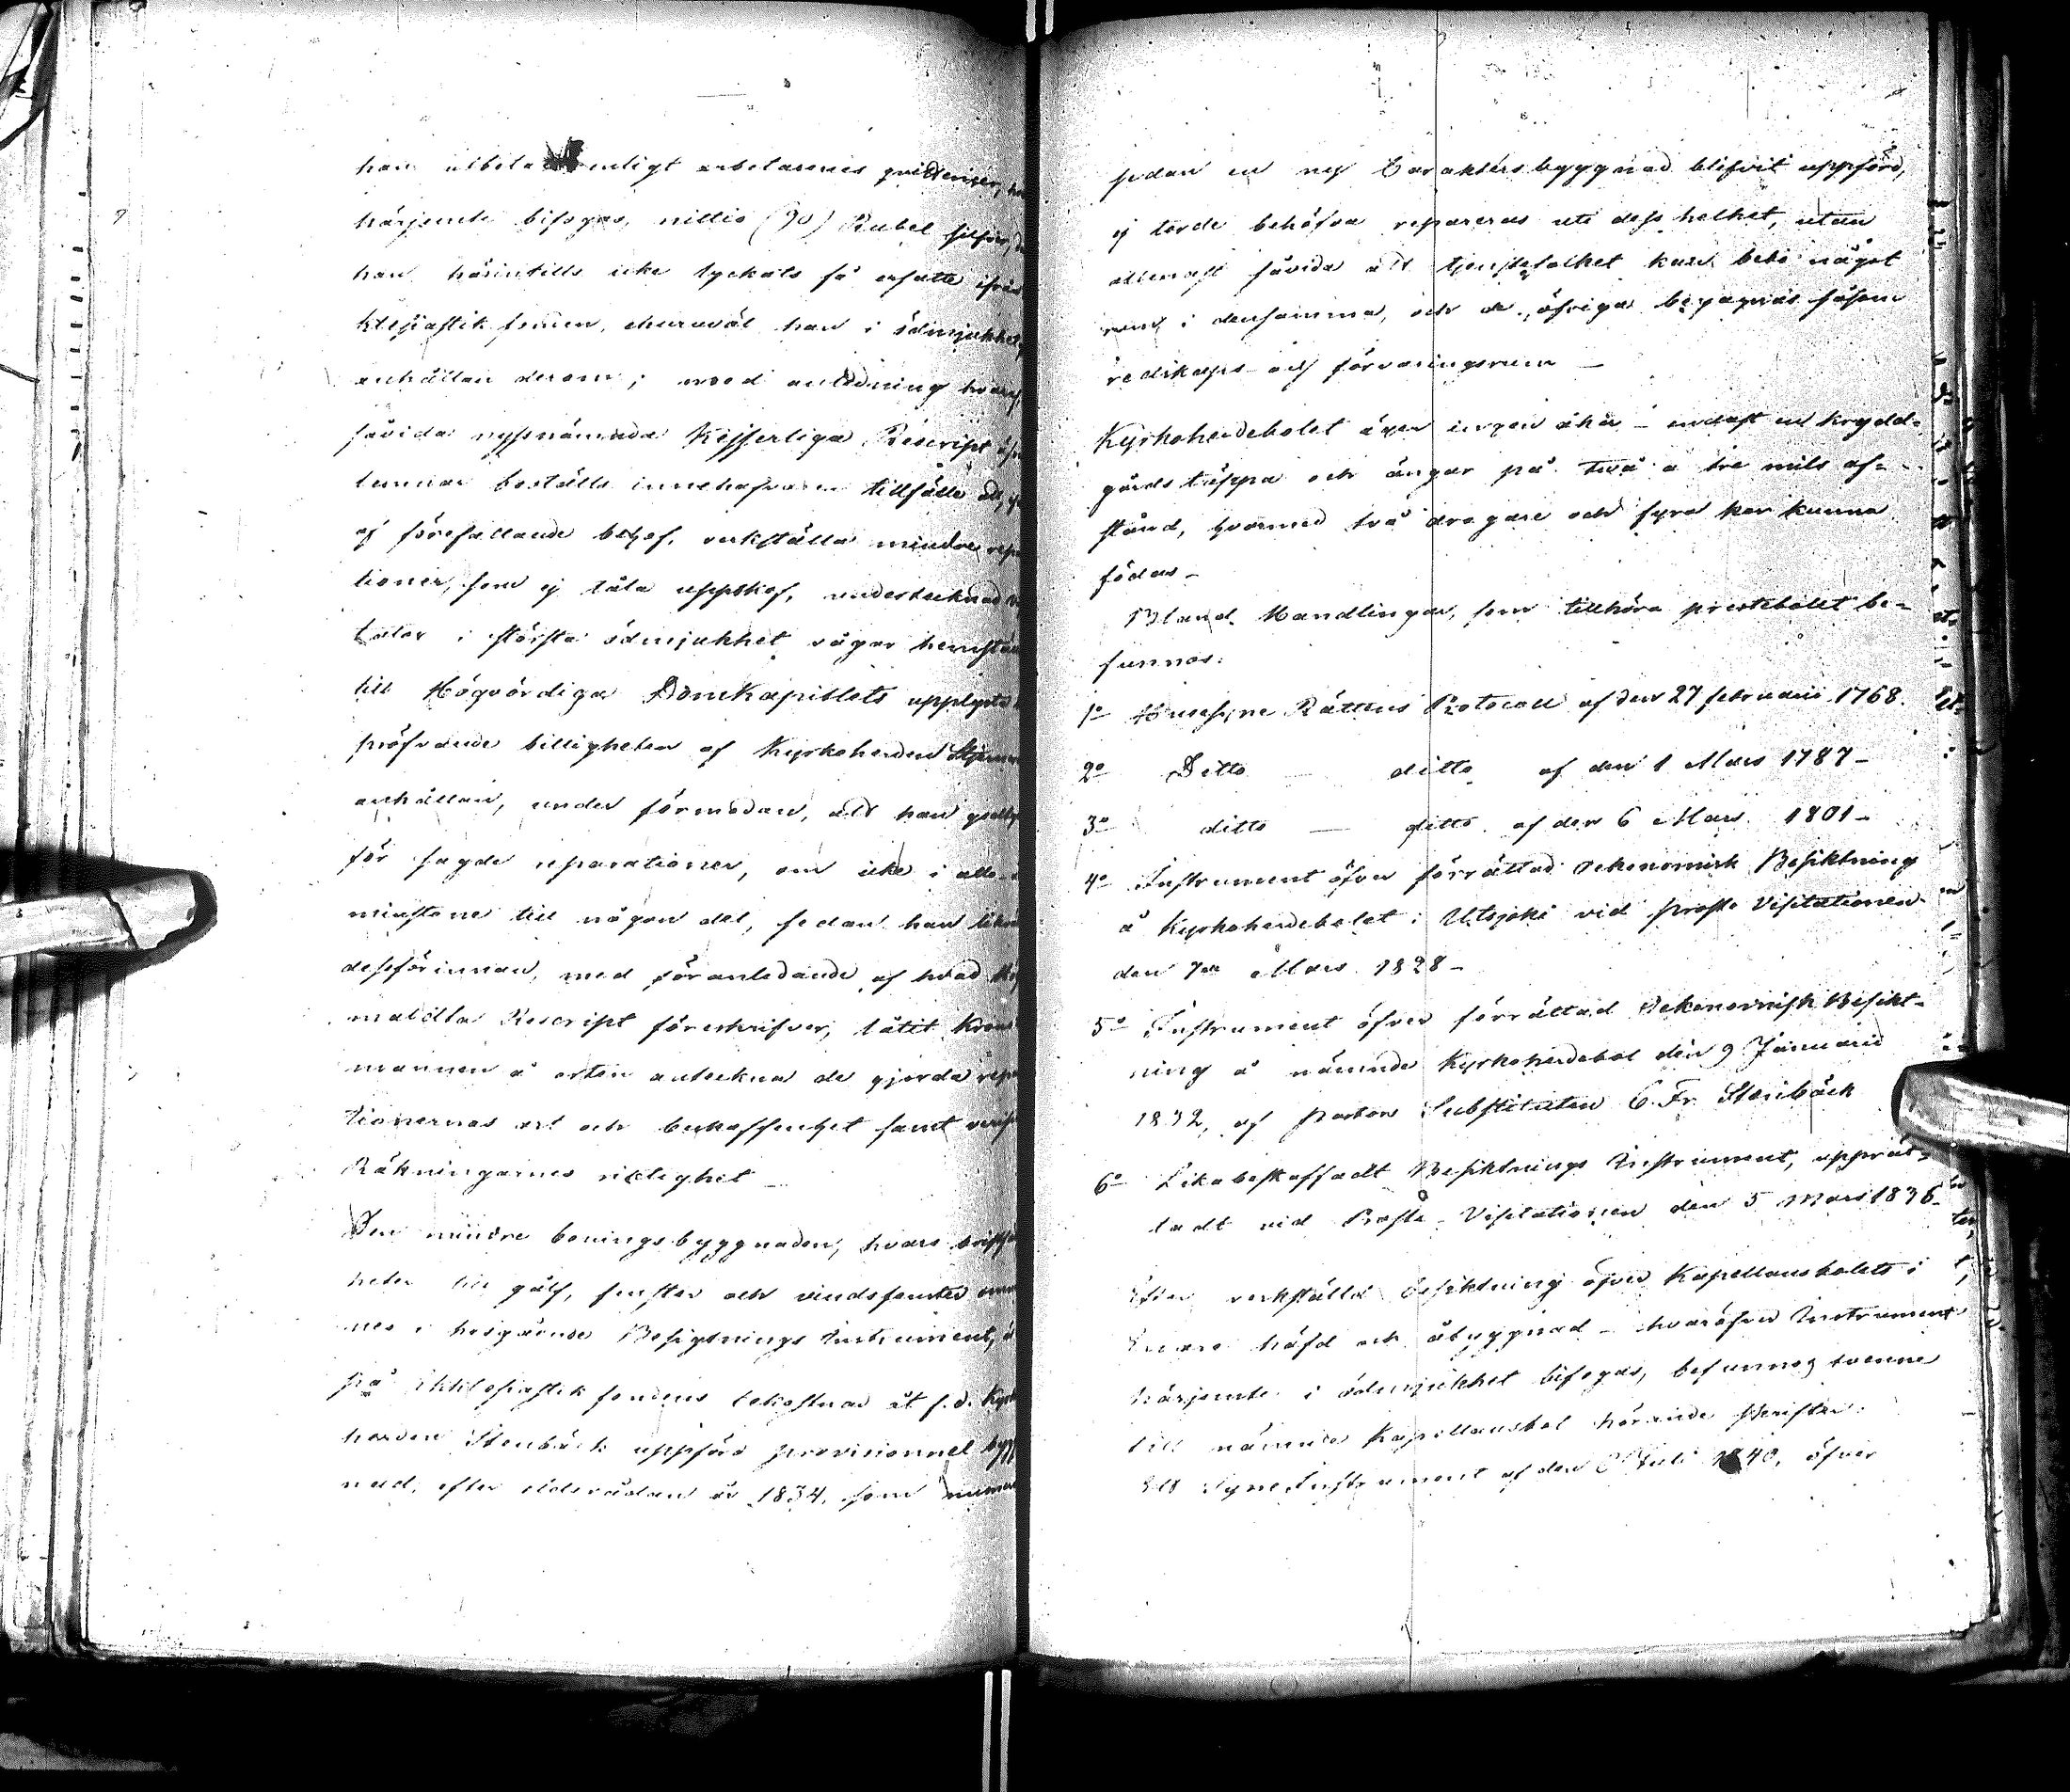 han utbetalt enligt arbetarenes qvittenser,
härjemte bifogas, nittio (90) Rubel silfver,
han härintills icke lyckats få ersatte ifrån
klesiastik fonden, churuväl han i ödmjukhet
anhållan derom; med anledning hvaraf,
såvida nyssnämnda Kejserliga Rescript
lemnar boställs innehafvaren tillfälle att,
af förefallande behof, verkställa mindre repa
tioner, som ej tåla uppskof, undertecknad
talar i största ödmjukhet vågar hemställa
till Högvördiga DomKapitlets upplysta
pröfvande billigheten af Kyrkoherden
anhållan, under förmodan, att han
för sagde reparationer, om icke i allo
minstone till någon del, sedan han
dessförinnan, med föranledande af hvad
mäldta Rescript föreskrifver, låtit Krono
mannen å orten anteckna de gjorda repa
tionernas art och beskaffenhet samt
Räkningarnes riktighet —
Den mindre boningsbyggnaden, hvars
heter till golf, fenster och vindsfenster
nes i hosgående Besigtnings Instrument,
på Ekklesiastik fondens bekostnad åt f.d. Kyrk
herden Stenbäck uppförd provisionnel bygg
nad, efter eldsvådan år 1834, som numera
sedan en ny Caraktersbyggnad blifvit uppförd,
ej torde behöfva repareras uti dess helhet, utan
allenast såvida att tjenstefolket kan bebo något
rum i densamma, och de öfriga begagnas såsom
redskaps- och förvaringsrum —
Kyrkoherdebolet äger ingen åker – endast en krydd-
gårds täppa och ängar på två a tre mils af-
stånd, hvarmed två dragare och fyra kor kunna
födas –
Bland Handlingar, som tillhöra prestebolet be-
funnos:
1o Husesyne Rättens Protocoll af den 27 februarii 1768.
2o Ditto — ditto af den 1 Mars 1787 –
3o ditto — ditto af den 6 Mars 1801 –
4o Instrument öfver förrättad oekonomisk Besiktning
å Kyrkoherdebolet i Utsjoki vid prosts Visitationen
den 7de Mars 1828 –
5o Instrument öfver förrättad Oekonomisk Besikt-
ning å nämnde Kyrkoherdebol den 9 Januarii
1832, af pastors Substituten C. Fr. Stenbäck
6o Lika beskaffadt Besiktnings Instrument, upprät-
tadt vid Prosts-Visitationen den 5 Mars 1836 –
Efter verkställd besiktning öfver Kapellansbolets i
Enare häfd och åbyggnad – hvaröfver Instrument
härjemte i ödmjukhet bifogas, befunnos tvenne
till nämnde Kapellansbol hörande skrifter:
Ett Syne Instrument af den Juli 1840, öfver